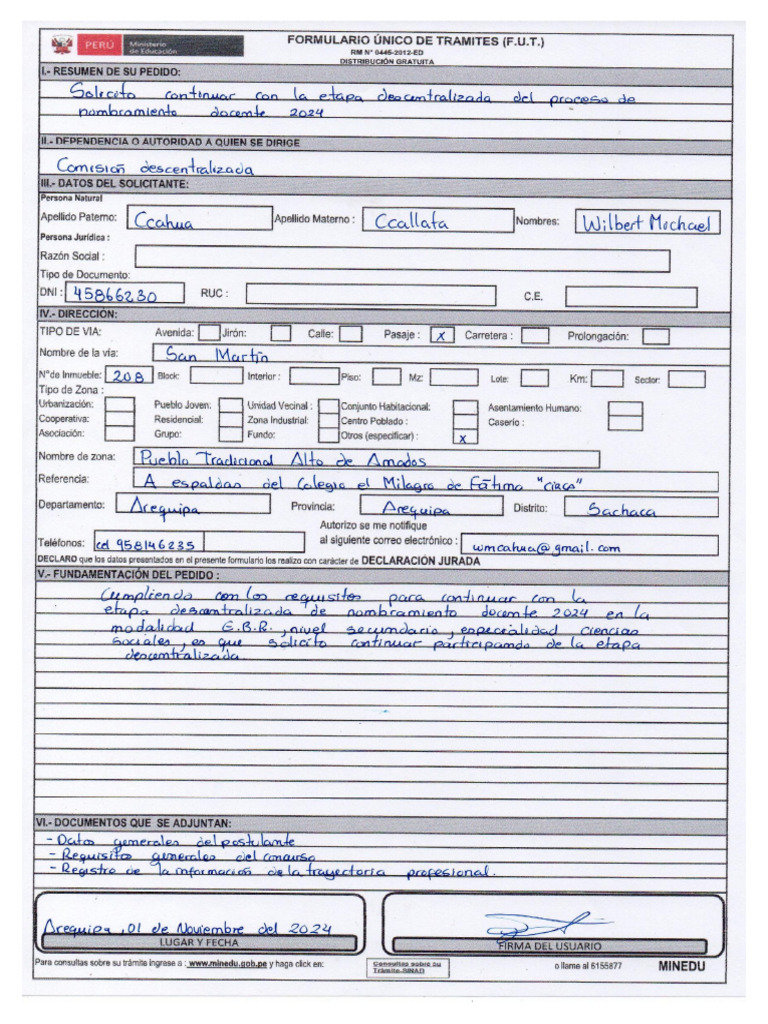 PERÚ Ministerio de Educación
FORMULARIO ÚNICO DE TRAMITES (F.U.T.)
RM N° 0445-2012-ED
DISTRIBUCIÓN GRATUITA
I.- RESUMEN DE SU PEDIDO:
Solicito continuar con la etapa descentralizada del proceso de
nombramiento docente 2024
II.- DEPENDENCIA O AUTORIDAD A QUIEN SE DIRIGE
Comisión descentralizada
III.- DATOS DEL SOLICITANTE:
Persona Natural
Apellido Paterno: Ccahua Apellido Materno : Ccallata Nombres: Wilbert Michael
Persona Jurídica :
Razón Social :
Tipo de Documento:
DNI : 45866230 RUC : C.E.
IV.- DIRECCIÓN:
TIPO DE VIA: Avenida: Jirón: Calle: Pasaje : x Carretera : Prolongación:
Nombre de la vía: San Martín
N°de Inmueble: 208 Block: Interior : Piso: Mz: Lote: Km: Sector:
Tipo de Zona :
Urbanización: Pueblo Joven: Unidad Vecinal : Conjunto Habitacional: Asentamiento Humano:
Cooperativa: Residencial: Zona Industrial: Centro Poblado : Caserio :
Asociación: Grupo: Fundo: Otros (especificar) : x
Nombre de zona: Pueblo Tradicional Alto de Amados
Referencia: A espaldas del Colegio el Milagro de Fátima "circa"
Departamento: Arequipa Provincia: Arequipa Distrito: Sachaca
Autorizo se me notifique
Teléfonos: cel 958146235 al siguiente correo electrónico : wmcahua@gmail.com
DECLARO que los datos presentados en el presente formulario los realizo con carácter de DECLARACIÓN JURADA
V.- FUNDAMENTACIÓN DEL PEDIDO :
Cumpliendo con los requisitos para continuar con la
etapa descentralizada de nombramiento docente 2024 en la
modalidad E.B.R, nivel secundario, especialidad ciencias
sociales, es que solicito continuar participando de la etapa
descentralizada.
VI.- DOCUMENTOS QUE SE ADJUNTAN:
- Datos generales del postulante
- Requisitos generales del concurso
- Registro de la información de la trayectoria profesional.
Arequipa, 01 de Noviembre del 2024
LUGAR Y FECHA FIRMA DEL USUARIO
Para consultas sobre su trámite ingrese a : www.minedu.gob.pe y haga click en: Consultas sobre su Trámite-SINAD o llame al 6155877 MINEDU